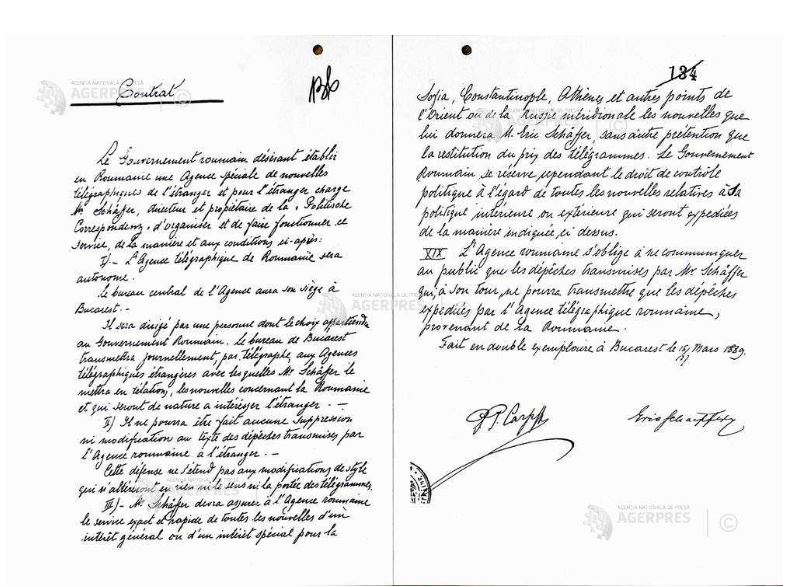 Contrat
Le Gouvernement roumain désirant établir
en Roumanie une Agence spéciale de nouvelles
télégraphiques de l'étranger et pour l'étranger charge
Mr Schäfer, directeur et propriétaire de la "Politische
Correspondenz", d'organiser et de faire fonctionner ce
service, de la manière et aux conditions ci-après:
I) - L'Agence télégraphique de Roumanie sera
autonome.
Le bureau central de l'Agence aura son siège à
Bucarest. -
Il sera dirigé par une personne dont le choix appartiendra
au Gouvernement Roumain. Le bureau de Bucarest
transmettra journellement, par télégraphe, aux Agences
télégraphiques étrangères avec lesquelles Mr Schäfer le
mettra en relation, les nouvelles concernant la Roumanie
et qui seront de nature a intéresser l'étranger. -
II) Il ne pourra être fait aucune suppression
ni modification au texte des dépêches transmises par
l'Agence roumaine à l'étranger. -
Cette défense ne s'étend pas aux modifications de style
qui n'altèreront en rien ni le sens ni la portée des télégrammes.
III) - Mr Schäfer devra assurer à l'Agence roumaine
le service exact et rapide de toutes les nouvelles d'un
intérêt général ou d'un intérêt spécial pour la
134
Sofia, Constantinople, Athènes et autres points de
l'Orient ou de la Russie méridionale les nouvelles que
lui donnera M. Eric Schäfer sans autre prétention que
la restitution du prix des télégrammes. Le Gouvernement
Roumain se réserve cependant le droit de contrôle
politique à l'égard de toutes les nouvelles relatives à sa
politique intérieure ou extérieure qui seront expediées
de la manière indiquée ci dessus.
XIX L'Agence roumaine s'oblige à ne communiquer
au public que les dépêches transmises par Mr Schäffer
qui, à son tour, ne pourra transmettre que les dépêches
expediées par l'Agence télégraphique roumaine,
provenant de la Roumanie.
Fait en double exemplaire à Bucarest le 15/ Mars 1889.
P. P. Carp
AGENȚIA NAȚIONALĂ DE PRESĂ
AGERPRES
©